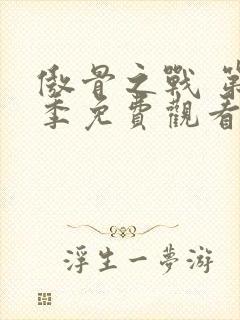 傲骨之戰 第
季免費觀看
浮生一夢游